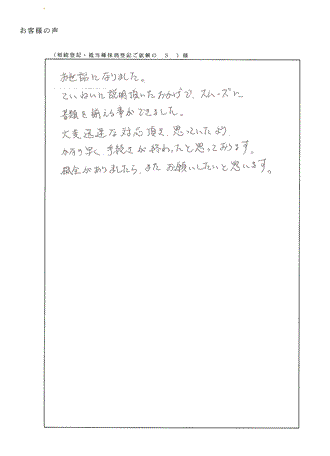 お客様の声
（相続登記・抵当権抹消登記ご依頼の S ）様
お世話になりました。
ていねいに説明頂いたおかげで、スムーズに
書類を揃える事ができました。
大変迅速な対応頂き、思っていたより
かなり早く、手続きが終わったと思っております。
機会がありましたら、また お願いしたいと思います。